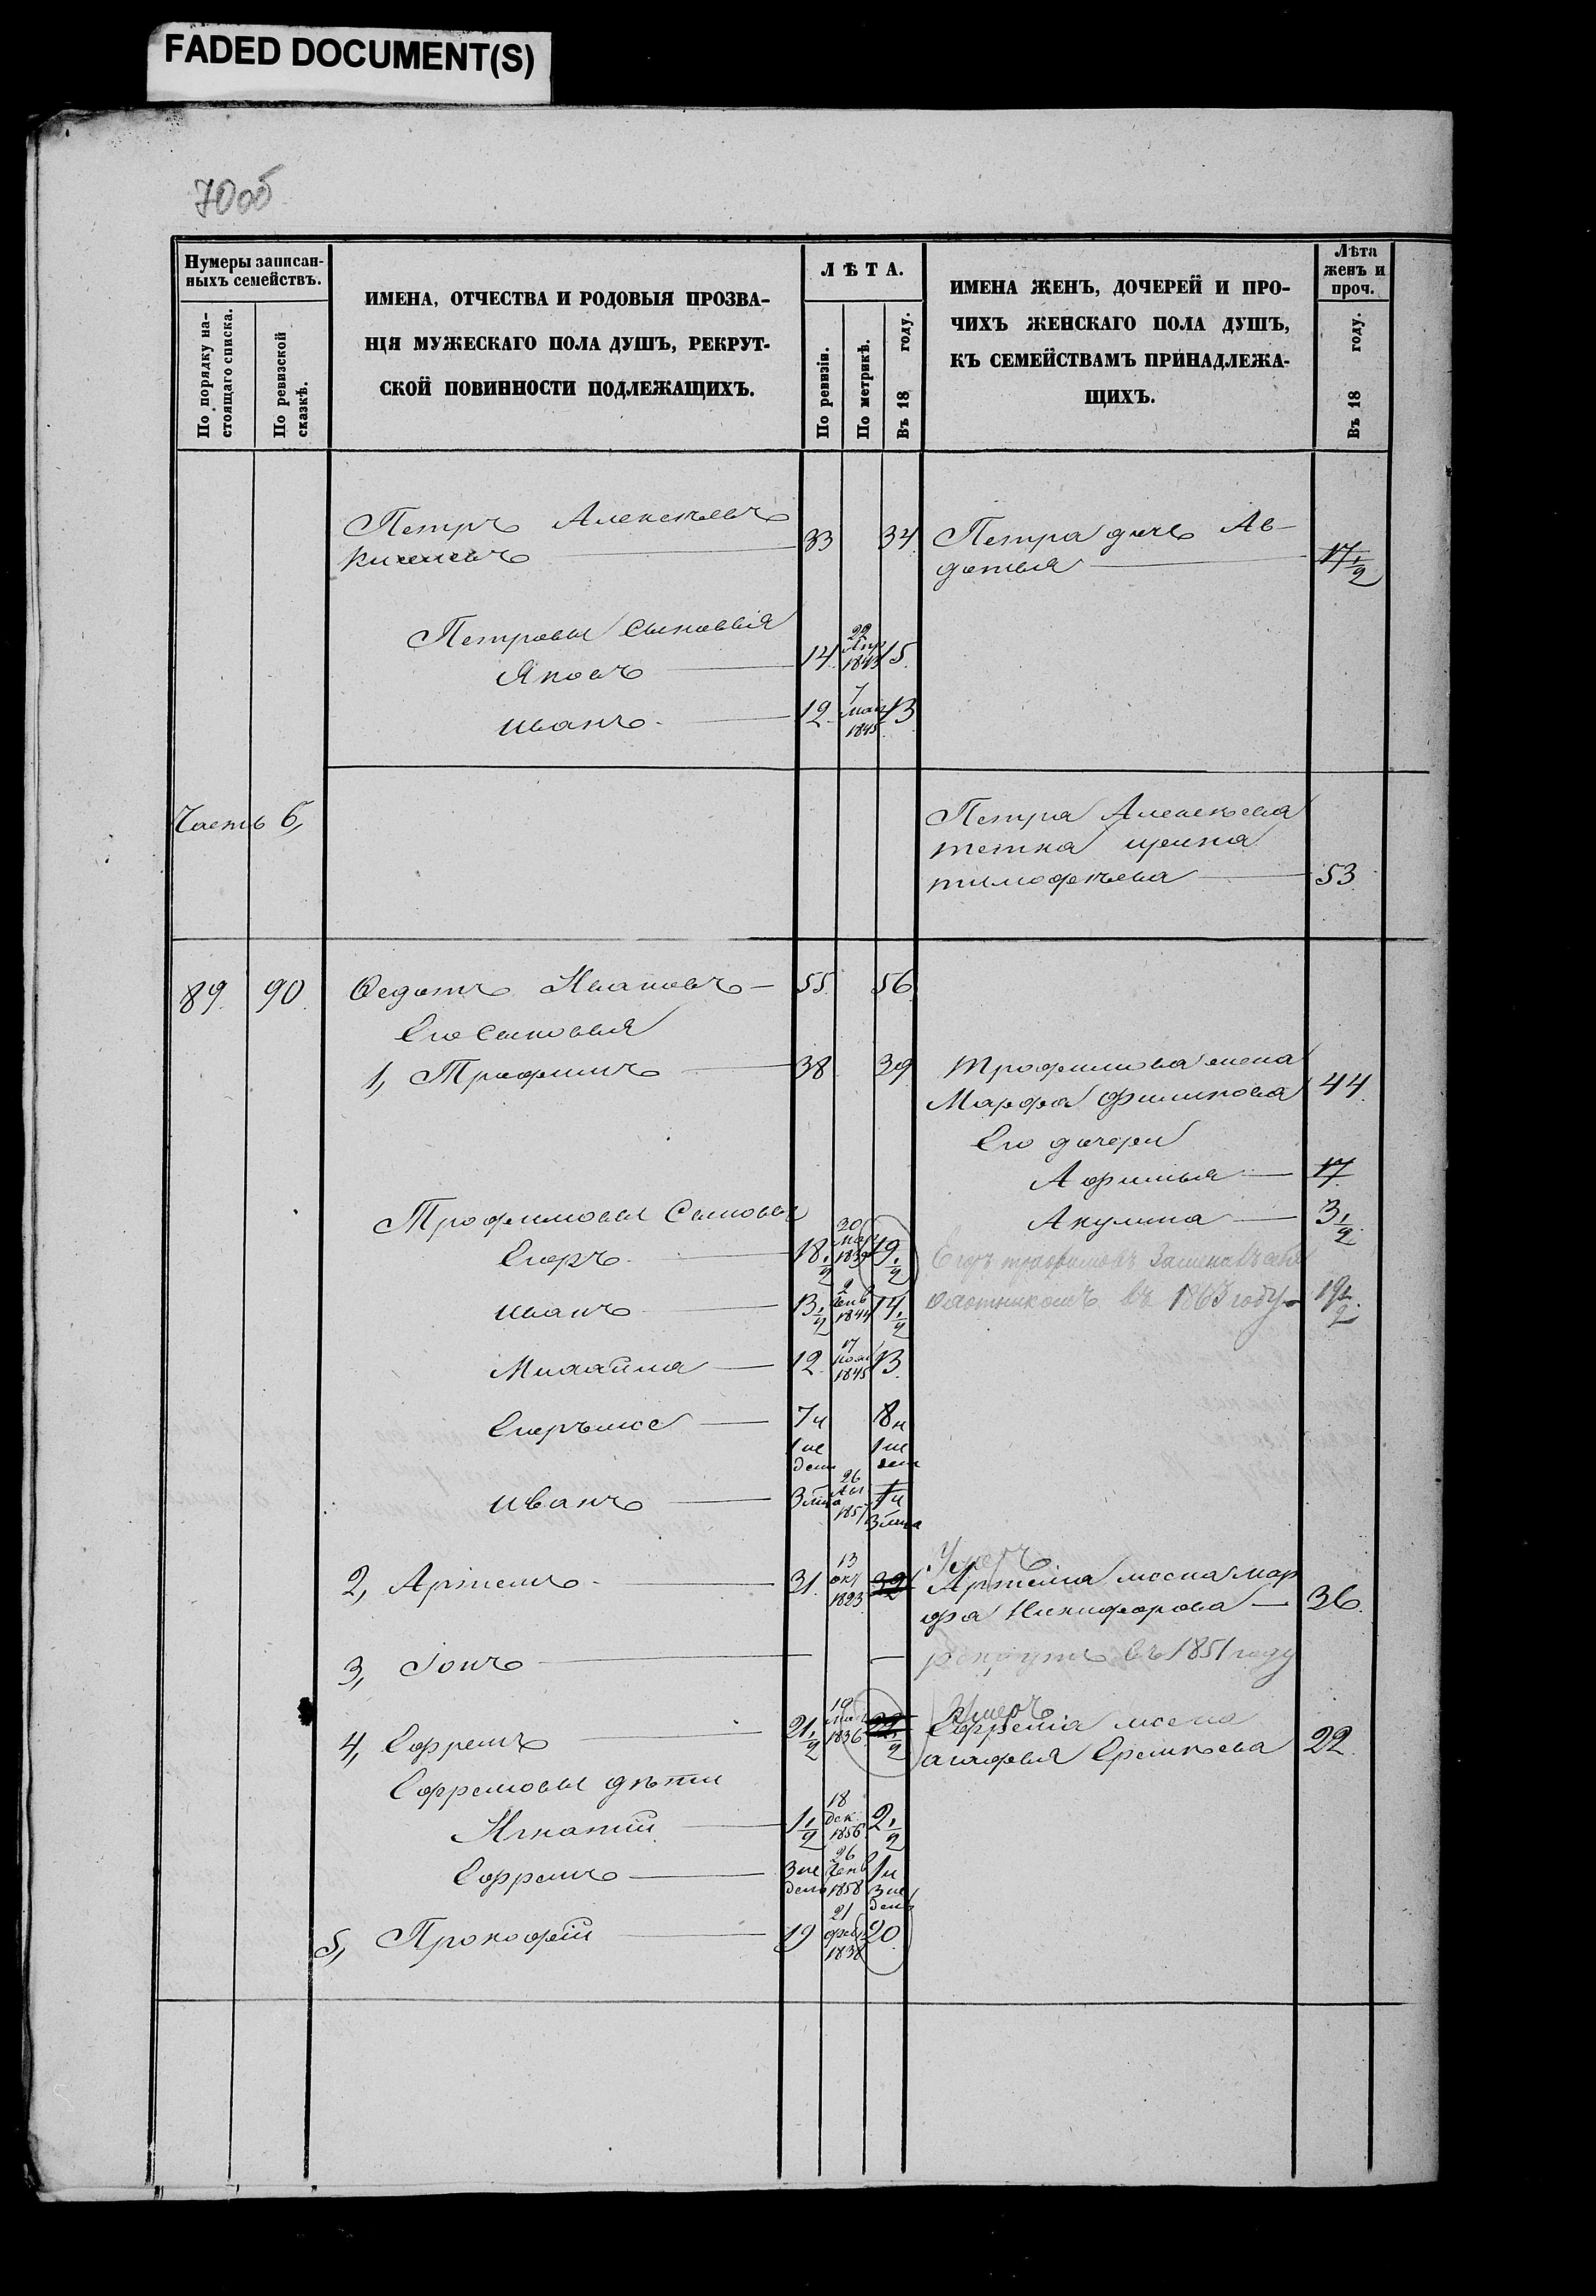 FADED DOCUMENT(S)
70об
Нумеры записан-
ныхъ семействъ.
По порядку на-
стоящаго списка.
По ревизской
сказкѣ.
ИМЕНА, ОТЧЕСТВА И РОДОВЫЯ ПРОЗВА-
НІЯ МУЖЕСКАГО ПОЛА ДУШЪ, РЕКРУТ-
СКОЙ ПОВИННОСТИ ПОДЛЕЖАЩИХЪ.
ЛѢТА.
По ревизіи.
По метрикѣ.
Въ 18 году.
ИМЕНА ЖЕНЪ, ДОЧЕРЕЙ И ПРО-
ЧИХЪ ЖЕНСКАГО ПОЛА ДУШЪ,
КЪ СЕМЕЙСТВАМЪ ПРИНАДЛЕЖА-
ЩИХЪ.
Лѣта
женъ и
проч.
Въ 18 году.
Петръ Алексѣевъ
33 34
Петра дочь Ав-
дотья 17 1/2
Петровы сыновья
Яковъ 14 22 Апр 1843 15
Иванъ 12 7 мая 1845 13
Часть 6,
Петра Алексѣева
тетка Ирина
тимофѣева 53
89 90 Ѳедотъ Ивановъ 55 56
Его сыновья
1, Трофимъ 38 39
Трофимова жена
Марфа Филипова 44
Его дочери
Афимья 17
Акулина 3 1/2
Трофимовы Сыновья
Егоръ 18 1/2 30 мар 1839 19 1/2
Егоръ трофимовъ
охотникомъ въ 1863 году 19 1/2
Иванъ 13 1/2 2 1844 14 1/2
Михайла 12 17 ноя 1845 13
7 и 1 не дели 8 и 1 не дели
Иванъ 3 26 1857 1 и 3
2, Артемъ 31 13 окт 1823 32
Умеръ
Артема жена Мар
фа Никифорова 36
3, Іонъ
рекрутъ въ 1851 году
4, Ефремъ 21 1/2 10 1836 22 1/2
Умеръ
Ефрема жена
агафья Еремѣева 22
Ефремовы дѣти
Игнатій 1 1/2 18 дек 1856 2 1/2
Ефремъ 3 не дели 26 1858 1 и 3 не дели
5, Прокофій 19 21 фев 1838 20